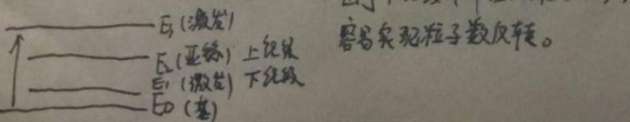 E₃(激发)
E₂(亚稳) 上能级
E₁(激发) 下能级
E₀(基)
容易实现粒子数反转。